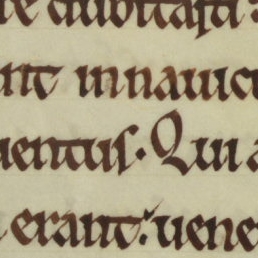 re dubitasti:
unt in nauicu
uentus. Qui a
erant: uene